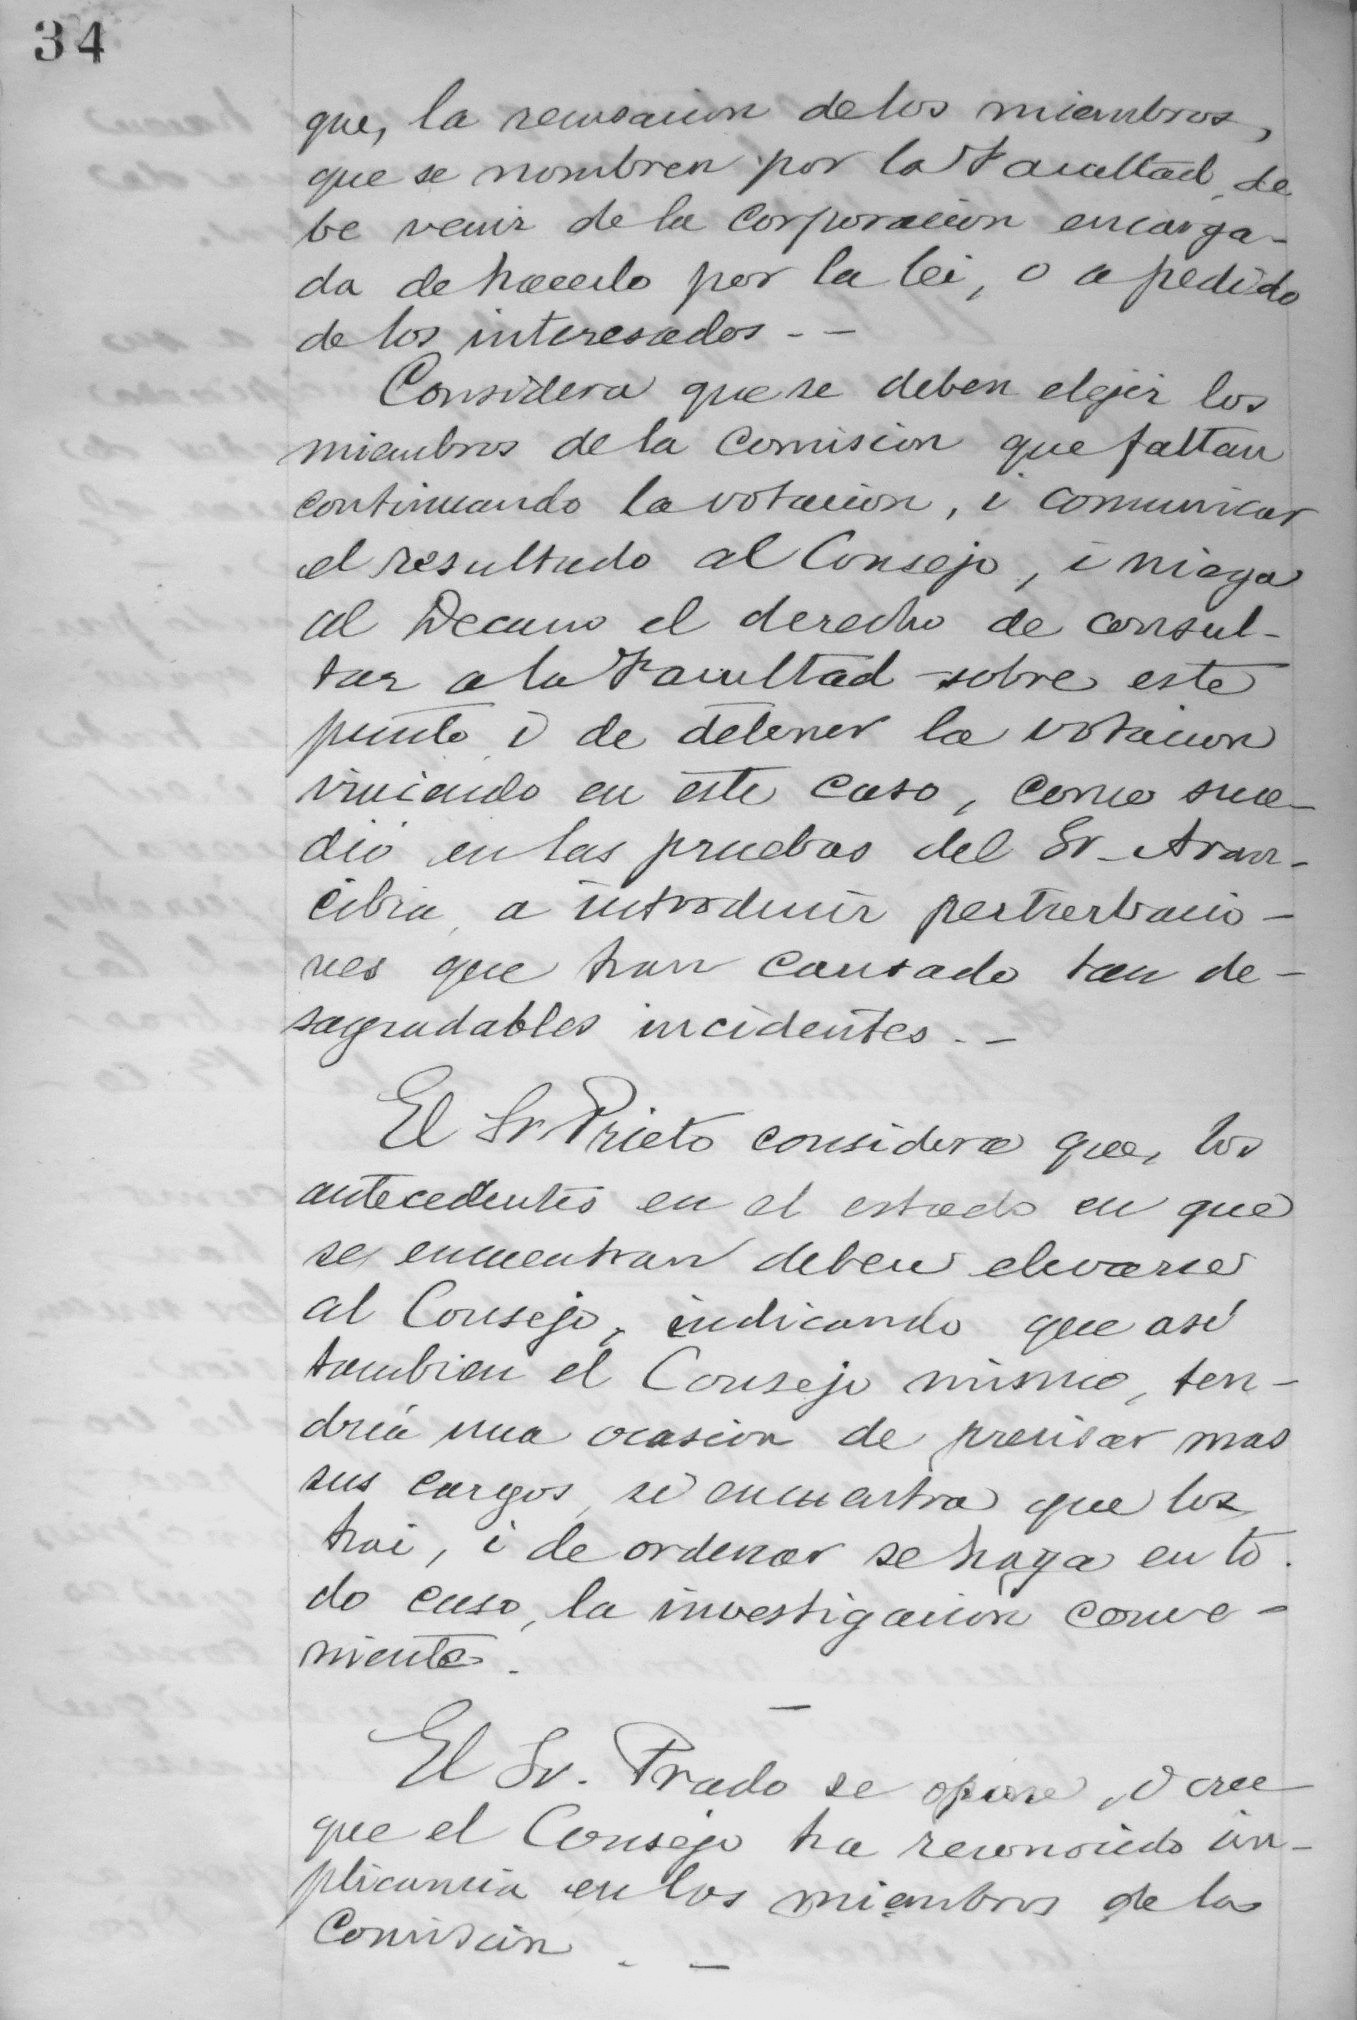 34
que, la recusacion de los miembros,
que se nombren por la Facultad de
be venir de la corporacion encarga-
da de hacerlo por la lei, o a pedido
de los interesados. -
Considera que se deben elejir los
miembros de la comision que faltan
continuando la votacion, i comunicar
el resultado al Consejo, i niega
al Decano el derecho de consul-
tar a la Facultad sobre este
punto i de detener la votacion
viniendo en este caso, como suce-
dió en las pruebas del Sr. Aran-
cibia a introducir perturbacio-
nes que han causado tan de-
sagradables incidentes. -
El Sr. Prieto considera que, los
antecedentes en el estado en que
se encuentran deben elevarse
al Consejo, indicando que asi
tambien el Consejo mismo, ten-
dría una ocasion de precisar mas
sus cargos si encuentra que los
hai, i de ordenar se haga en to-
do caso, la investigacion conve-
niente.
-
El Sr. Prado se opone, i cree
que el Consejo ha reconocido im-
plicancia en los miembros de la
Comision. -